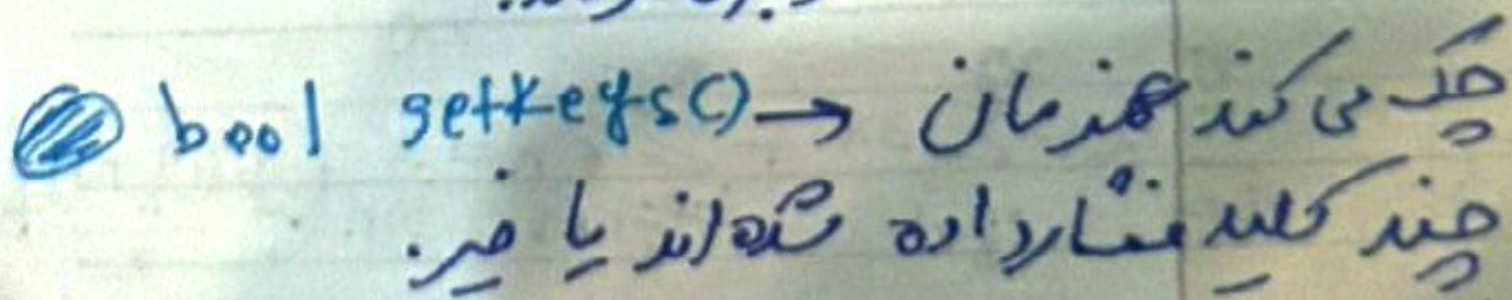 bool getKeys() → چک می کند همزمان
چند کلید فشار داده شده اند یا خیر.